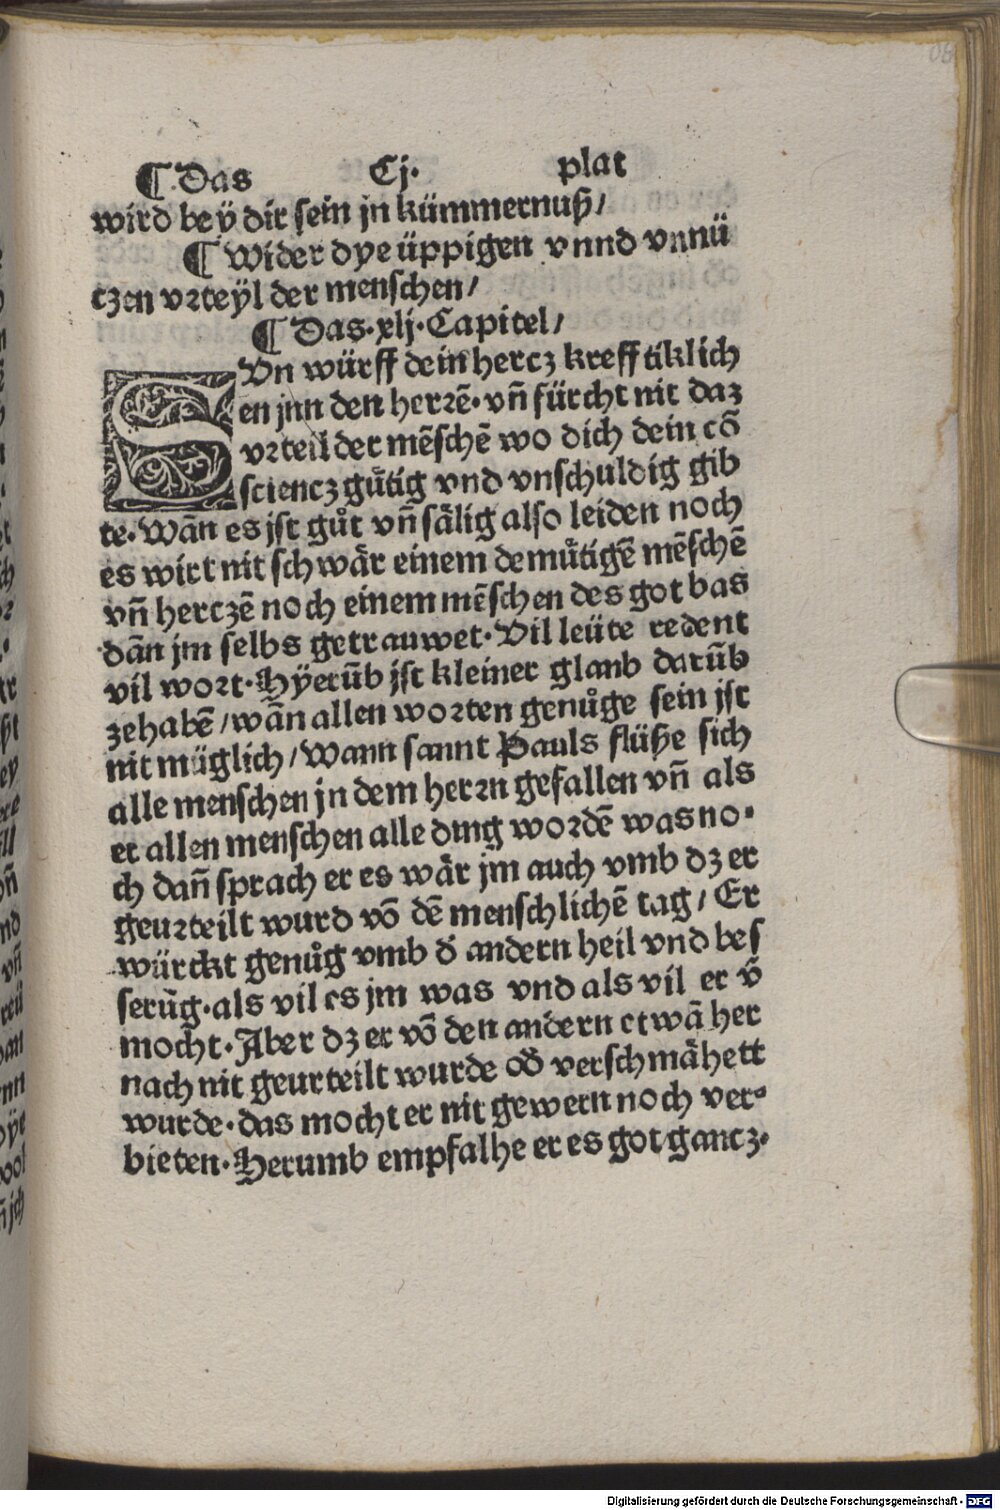 ¶ Das Cj. plat
wird bey dir sein jn kümmernuß/
¶ Wider dye üppigen vnnd vnnü
tzen vrteyl der menschen/
¶ Das·xlj·Capitel/
SVn würff dein hercz krefftiklich
en jnn den herrē· vn̄ fürcht nit daz
vrteil der mēschē wo dich dein cō
sciencz gůtig vnd vnschuldig gib
te· Wān es jst gůt vn̄ sälig also leiden noch
es wirt nit schwär einem demůtigē mēschē
vn̄ herczē noch einem mēschen des got bas
dān jm selbs getrauwet· Vil leüte redent
vil wort· Hyerūb jst kleiner glaub darūb
zehabē/wān allen worten genůge sein jst
nit müglich/Wann sannt Pauls flüße sich
alle menschen jn dem herrn gefallen vn̄ als
er allen menschen alle ding wordē was no-
ch dan̄ sprach er es wär jm auch vmb dz er
geurteilt wurd vō dē menschlichē tag/ Er
würckt genůg vmb d̄ andern heil vnd bes
serūg· als vil es jm was vnd als vil er v̄
mocht· Aber dz er vō den andern etwā her
nach nit geurteilt wurde od̄ verschmähett
wurde· das mocht er nit gewern noch ver-
bieten· Herumb empfalhe er es got gancz·
Digitalisierung gefördert durch die Deutsche Forschungsgemeinschaft - DFG